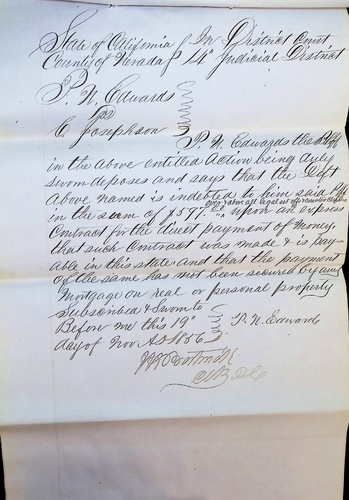 State of California } In District Court
County of Nevada } 14th Judicial District
P. W. Edwards
vs
E. Josephson
P. W. Edwards the Plff
in the above entitled action being duly
sworn deposes and says that the Deft
above named is indebted to him said Plff
over & above all legal set offs & counter claims
in the sum of $577. upon an express
contract for the direct payment of money,
that such contract was made & is pay-
able in this state and that the payment
of the same has not been secured by any
Mortgage on real or personal property
Subscribed & Sworn to
Before me this 19th P. W. Edwards
day of Nov AD 1856